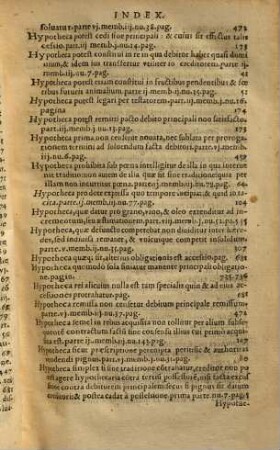 INDEX.
soluatur. parte vj. memb. iij. nu. 15. pag. 472
Hypotheca potest cedi sine principali: & cuius sit effectus talis
cessio. part. ij. memb. j. nu. 14. pag. 175
Hypotheca potest constitui in re in qua debitor habet quasi domi
nium, & idem ius transfertur vtiliter in creditorem. parte ij.
memb. iij. nu. 7. pag. 41
Hypotheca potest etiam constitui in fructibus pendentibus & foe
tibus futuris animalium. parte ij. memb. iij. nu. 15. pag. 51
Hypotheca potest legari per testatorem. part. iij. memb. j. nu. 16
pagina 104
Hypotheca potest remitti pacto debito principali non satisfactus
part. ij. memb. j. nu. 44. pag. 442
Hypotheca prima non creditur nouata, nec sublata per proroga
tionem termini ad soluendum facta debitori. parte. vj. memb.
iij. nu. 6. pag. 430
Hypotheca prohibita sub poena intelligitur de illa in qua interue
nit traditio non autem de illa quae sit sine traditione in qua per
illam non intratur poena. parte ij. memb. iij. nu. 73. pag. 64
Hypotheca pro dote expressa quo tempore incipiat, & quid in ta
cita. parte. ij. memb. iij. nu. 77. pag. 104
Hypotheca, quae datur pro grano, non, & deo extenditur ad in-
crementum, seu
Hypotheca, quae defuncto competebat non diuiditur inter haere-
des, sed indiuisa remanet, & vnicuique competit in solidum
parte. v. memb. ij. nu. pag.
Hypotheca quaeque, sit, alterius obligationis est accessio. pag.
Hypotheca quae modo sola finiatur manente principali obligatio-
ne. pagina 735. 736
Hypotheca rei alicuius nulla est tam specialis quin & ad alias ac
cessiones protrahatur. pag.
Hypotheca remissa non censetur debitum principale remissum
parte. vj. memb. j. nu. 37. pag. 480
Hypotheca semel in rebus acquisita non tollitur per alium subse-
quente contractum factum sine consensu illius cui primo acquisi
ta est. parte iij. memb. ij. nu. 143. pag. 147
Hypotheca sicut praescriptione perempta perimitur & authoritas
vendendi pignus. part. ij. memb. j. nu. 31. pag. 454
Hypotheca simplex si sine traditione contrahatur, creditor non po
test agere hypothecaria contra tertium possessorem, nisi prius exco
tiat contra debitorem principalem secus si pignus sit datum
possessori & postea cadat a possessione prima parte nu. 7. pag. 5
Hypothe-